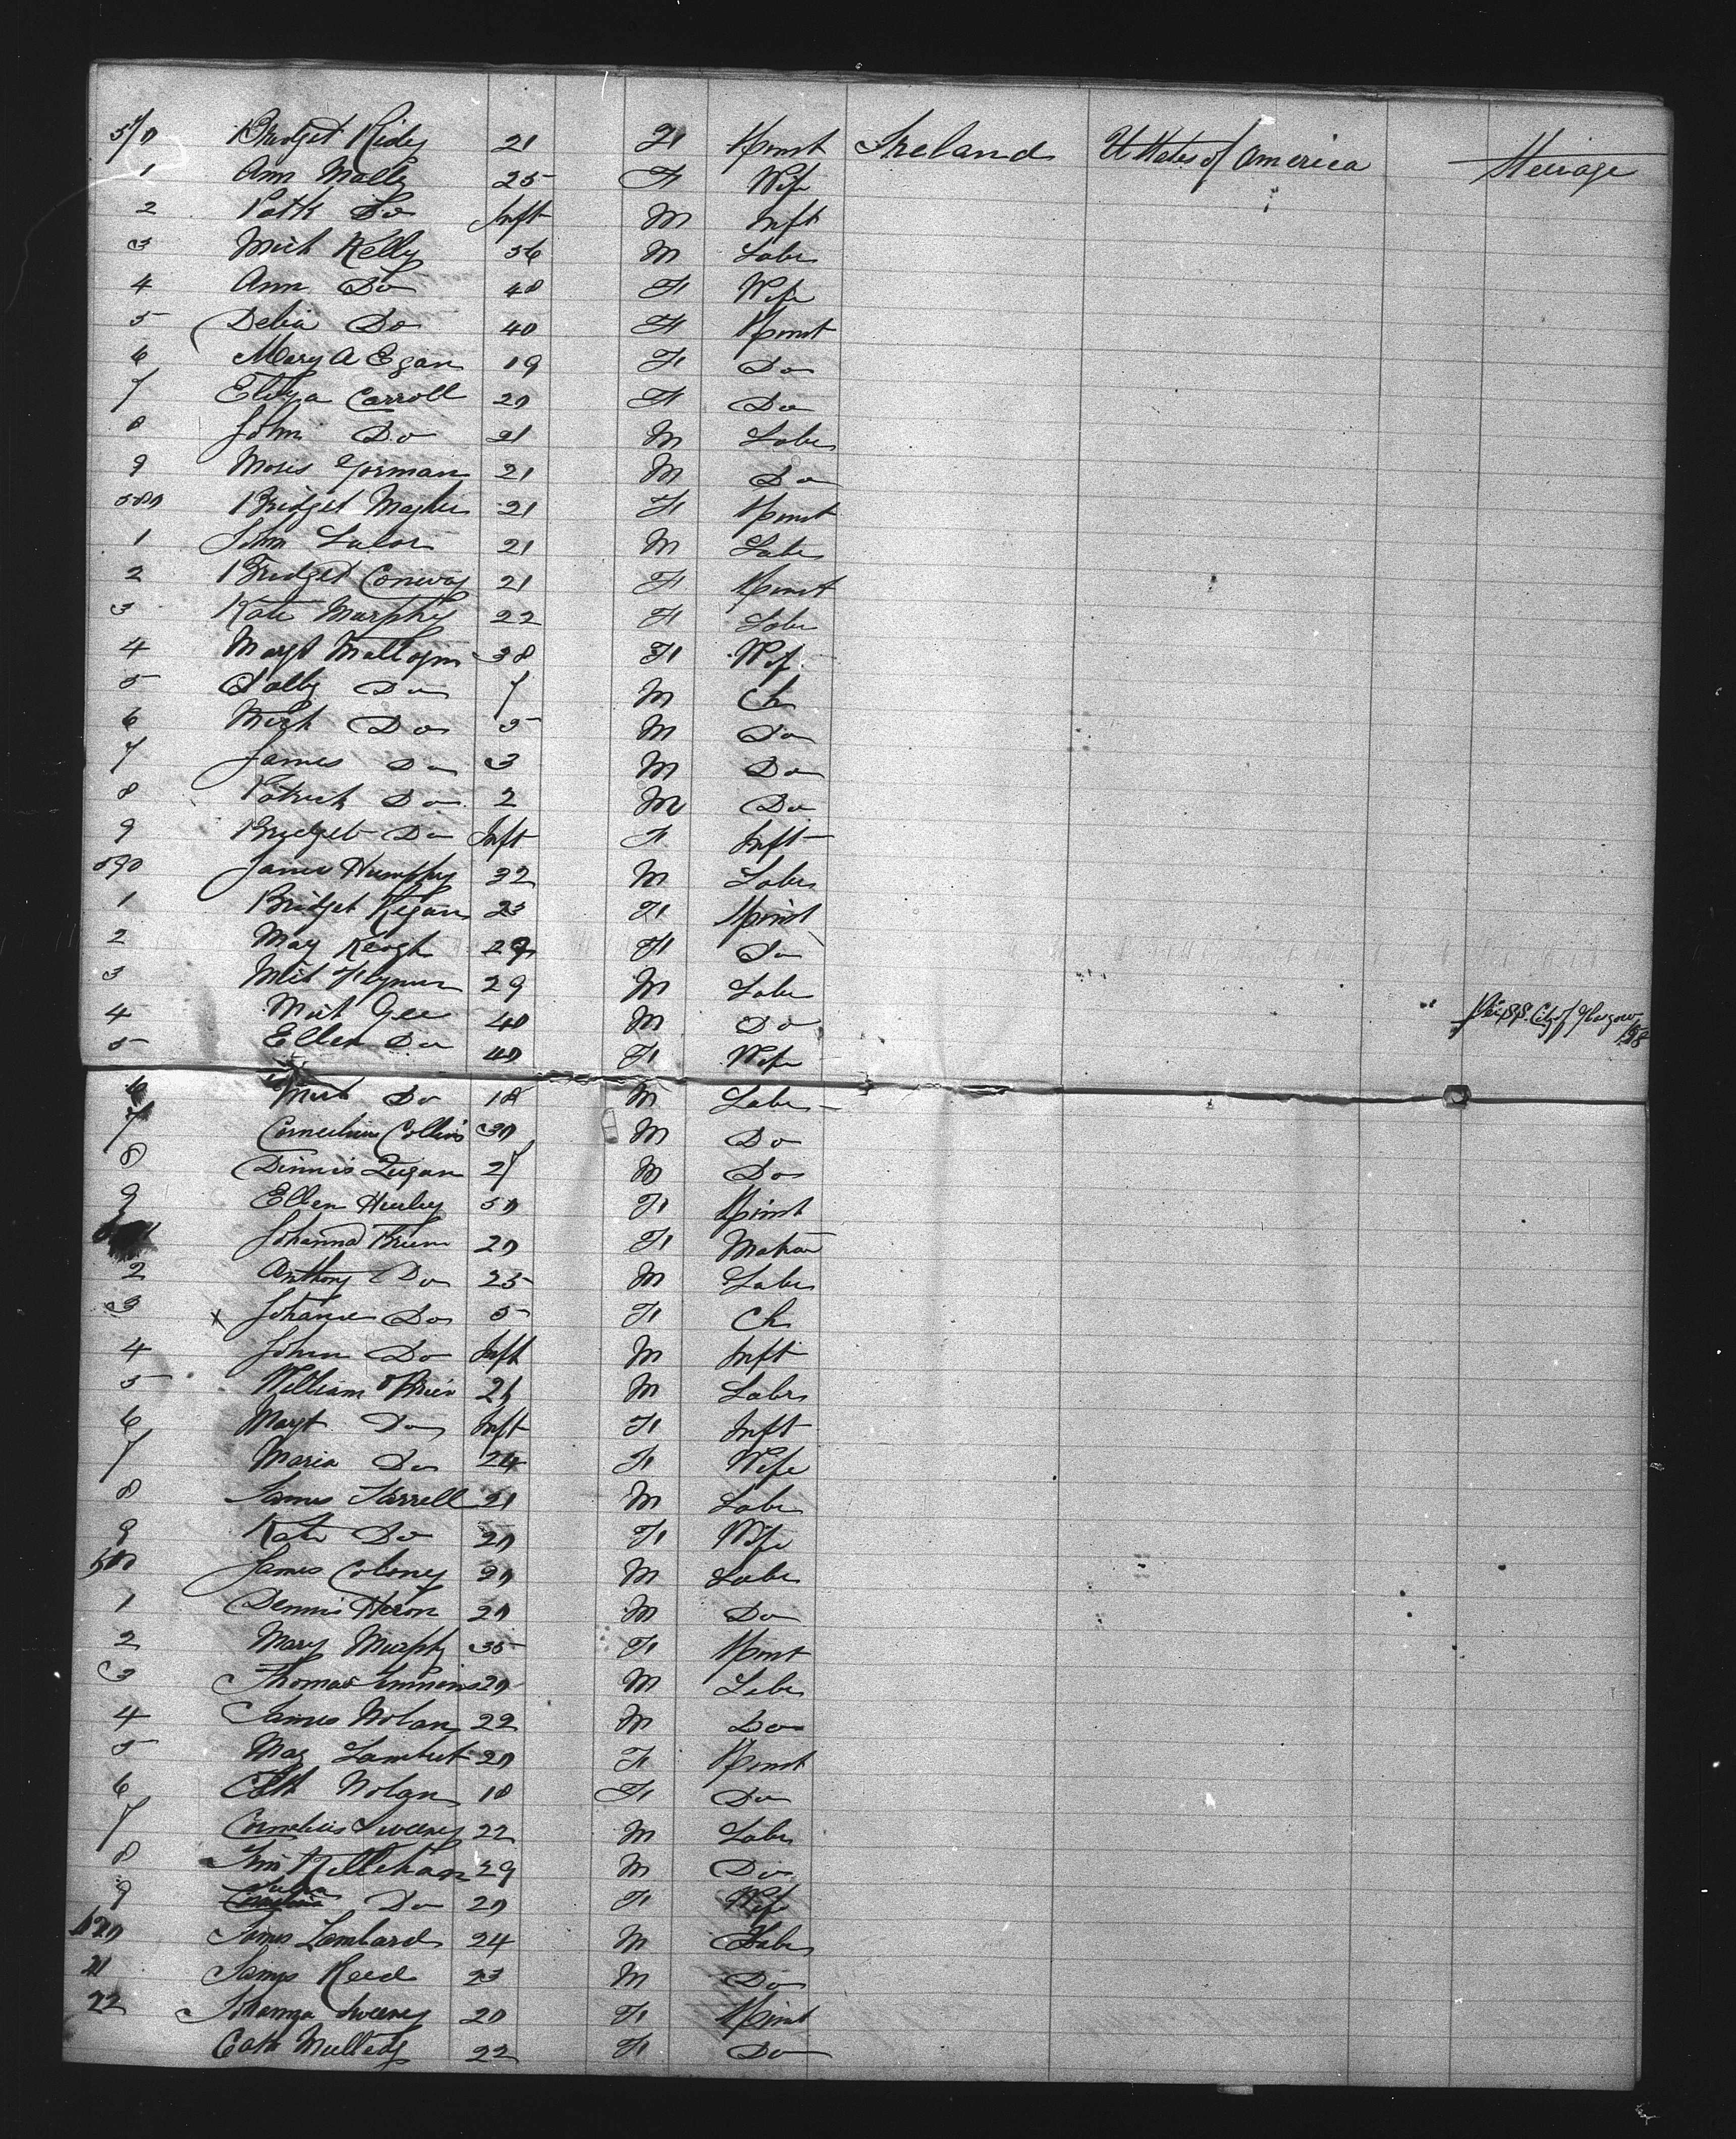 570 Bridget Kidy 21 F Spinst Ireland U States of America Steerage
1 Ann Mally 25 F Wife
2 Patk Do Inft M Inft
3 Mich Kelly 56 M Labr
4 Ann Do 48 F Wife
5 Delia Do 40 F Spinst
6 Mary A Egan 19 F Do
7 Eliza Carroll 20 F Do
8 John Do 21 M Labr
9 Gorman 21 M Do
580 Bridget 21 F Spinst
1 John Lalor 21 M Labr
2 Bridget Conway 21 F Spinst
3 Kate Murphy 22 F Labr
4 Margt 38 F Wife
5 Do 7 M Ch
6 Mich Do 5 M Do
7 James Do 3 M Do
8 Patrick Do 2 M Do
9 Bridget Do Inft F Inft
590 James Humphy 32 M Labr
1 Bridget Kegan 23 F Spinst
2 May Keogh F Do
3 Mich Flynn 29 M Labr
4 Mich Gee 40 M Do Per S.S. City of Glasgow
5 Ellen Do 40 F Wife
6 Mich Do 18 M Labr
7 Cornelius Collins 30 M Do
8 Dinnis 27 M Do
9 Ellen Hurley 50 F Spinst
Johanna 20 F Matron
2 Anthony Do 25 M Labr
3 x Johanna Do 5 F Ch
4 John Do Inft M Inft
5 William OBrien M Labr
6 Margt Do Inft F Inft
7 Maria Do 24 F Wife
8 James Farrell 21 M Labr
9 Kate Do 20 F Wife
610 James Coloney 20 M Labr
1 Dennis Heron 20 M Do
2 Mary Murphy 35 F Spinst
3 Thomas 20 M Labr
4 James Nolan 22 M Do
5 May Lambert 20 F Spinst
6 Cath Nolan 18 F Do
7 Cornelius Sweeny 22 M Labr
8 Killehan 29 M Do
9 Do 20 F Wife
620 James Lombard 24 M Labr
21 James Reed 23 M Do
22 Johanna Sweeny 20 F Spinst
Cath 22 F Do